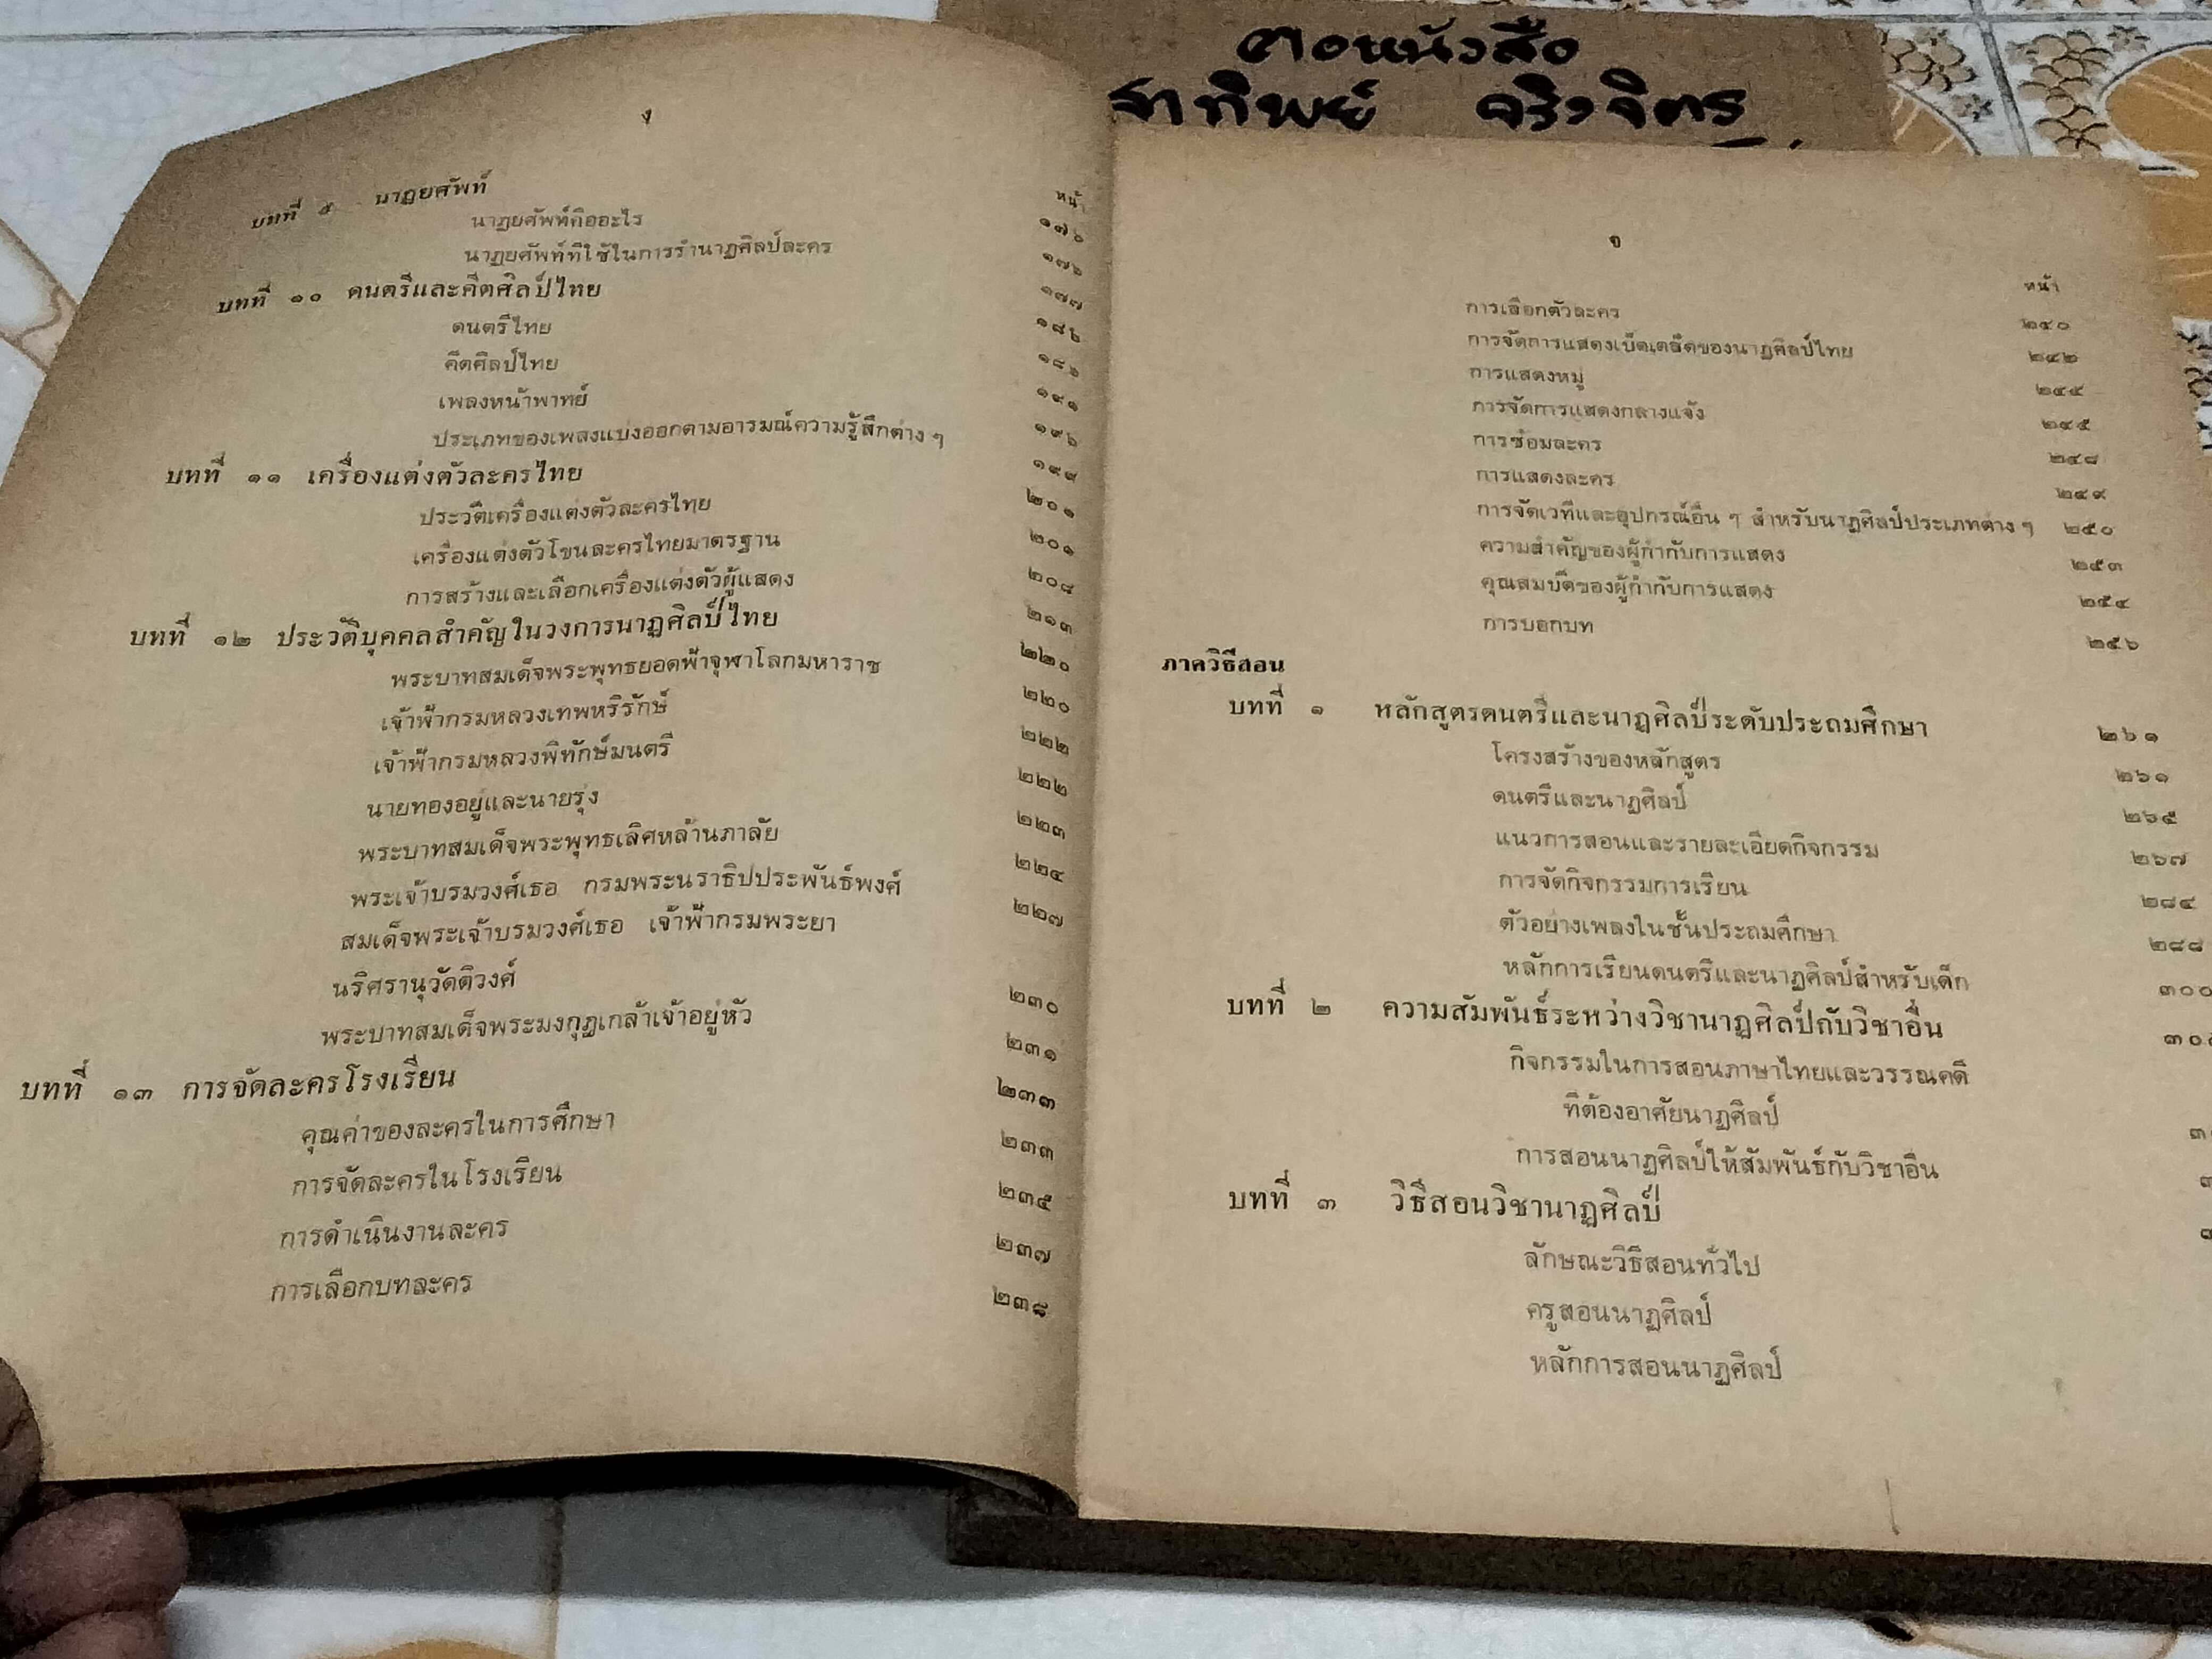 หนังสือ
ทิพย์ จริงจิตร
ง
หน้า
บทที่ ๙ นาฏยศัพท์ ๑๗๖
นาฏยศัพท์คืออะไร ๑๗๖
นาฏยศัพท์ที่ใช้ในการรำนาฏศิลป์ละคร ๑๗๗
บทที่ ๑๐ ดนตรีและคีตศิลป์ไทย ๑๘๖
ดนตรีไทย ๑๘๖
คีตศิลป์ไทย ๑๙๑
เพลงหน้าพาทย์ ๑๙๖
ประเภทของเพลงแบ่งออกตามอารมณ์ความรู้สึกต่าง ๆ ๑๙๙
บทที่ ๑๑ เครื่องแต่งตัวละครไทย ๒๐๑
ประวัติเครื่องแต่งตัวละครไทย ๒๐๑
เครื่องแต่งตัวโขนละครไทยมาตรฐาน ๒๐๘
การสร้างและเลือกเครื่องแต่งตัวผู้แสดง ๒๑๓
บทที่ ๑๒ ประวัติบุคคลสำคัญในวงการนาฏศิลป์ไทย ๒๒๐
พระบาทสมเด็จพระพุทธยอดฟ้าจุฬาโลกมหาราช ๒๒๐
เจ้าฟ้ากรมหลวงเทพหริรักษ์ ๒๒๒
เจ้าฟ้ากรมหลวงพิทักษ์มนตรี ๒๒๒
นายทองอยู่และนายรุ่ง ๒๒๓
พระบาทสมเด็จพระพุทธเลิศหล้านภาลัย ๒๒๔
พระเจ้าบรมวงศ์เธอ กรมพระนราธิปประพันธ์พงศ์ ๒๒๗
สมเด็จพระเจ้าบรมวงศ์เธอ เจ้าฟ้ากรมพระยา
นริศรานุวัดติวงศ์ ๒๓๐
พระบาทสมเด็จพระมงกุฎเกล้าเจ้าอยู่หัว ๒๓๑
บทที่ ๑๓ การจัดละครโรงเรียน ๒๓๓
คุณค่าของละครในการศึกษา ๒๓๓
การจัดละครในโรงเรียน ๒๓๕
การดำเนินงานละคร ๒๓๗
การเลือกบทละคร ๒๓๘
จ
หน้า
การเลือกตัวละคร ๒๔๐
การจัดการแสดงเบ็ดเตล็ดของนาฏศิลป์ไทย ๒๔๒
การแสดงหมู่ ๒๔๔
การจัดการแสดงกลางแจ้ง ๒๔๕
การซ้อมละคร ๒๔๘
การแสดงละคร ๒๔๙
การจัดเวทีและอุปกรณ์อื่น ๆ สำหรับนาฏศิลป์ประเภทต่าง ๆ ๒๕๐
ความสำคัญของผู้กำกับการแสดง ๒๕๓
คุณสมบัติของผู้กำกับการแสดง ๒๕๔
การบอกบท ๒๕๖
ภาควิธีสอน
บทที่ ๑ หลักสูตรดนตรีและนาฏศิลป์ระดับประถมศึกษา ๒๖๑
โครงสร้างของหลักสูตร ๒๖๑
ดนตรีและนาฏศิลป์ ๒๖๕
แนวการสอนและรายละเอียดกิจกรรม ๒๖๗
การจัดกิจกรรมการเรียน ๒๘๔
ตัวอย่างเพลงในชั้นประถมศึกษา ๒๘๘
หลักการเรียนดนตรีและนาฏศิลป์สำหรับเด็ก ๓๐๐
บทที่ ๒ ความสัมพันธ์ระหว่างวิชานาฏศิลป์กับวิชาอื่น
กิจกรรมในการสอนภาษาไทยและวรรณคดี
ที่ต้องอาศัยนาฏศิลป์
การสอนนาฏศิลป์ให้สัมพันธ์กับวิชาอื่น
บทที่ ๓ วิธีสอนวิชานาฏศิลป์
ลักษณะวิธีสอนทั่วไป
ครูสอนนาฏศิลป์
หลักการสอนนาฏศิลป์